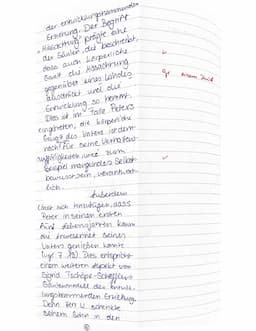 der entwicklungshemmenden
Erziehung. Der Begriff
"Missachtung" prägte eine
der Säulen, die beschreibt,
dass auch körperliche
Gewalt die Missachtung
gegenüber eines Kindes
ausdrückt und die
Entwicklung so hemmt.
Dies ist im Falle Peters
eingetreten, die körperliche
Gewalt des Vaters ist dem-
nach für seine Verhaltens-
auffälligkeiten und zum
Beispiel mangelndes Selbst-
bewusstsein, verantwort-
lich.
Außerdem
lässt sich hinzufügen, dass
Peter in seinen ersten
fünf Lebensjahren kaum
die Anwesenheit seines
Vaters genießen konnte
(vgl. Z. ). Dies entspricht
einem weiteren Aspekt von
Sigrid Tschöpe-Schefflers
Säulenmodell der entwick-
lungshemmenden Erziehung.
Denn Herr U. schenkte
seinem Sohn in den